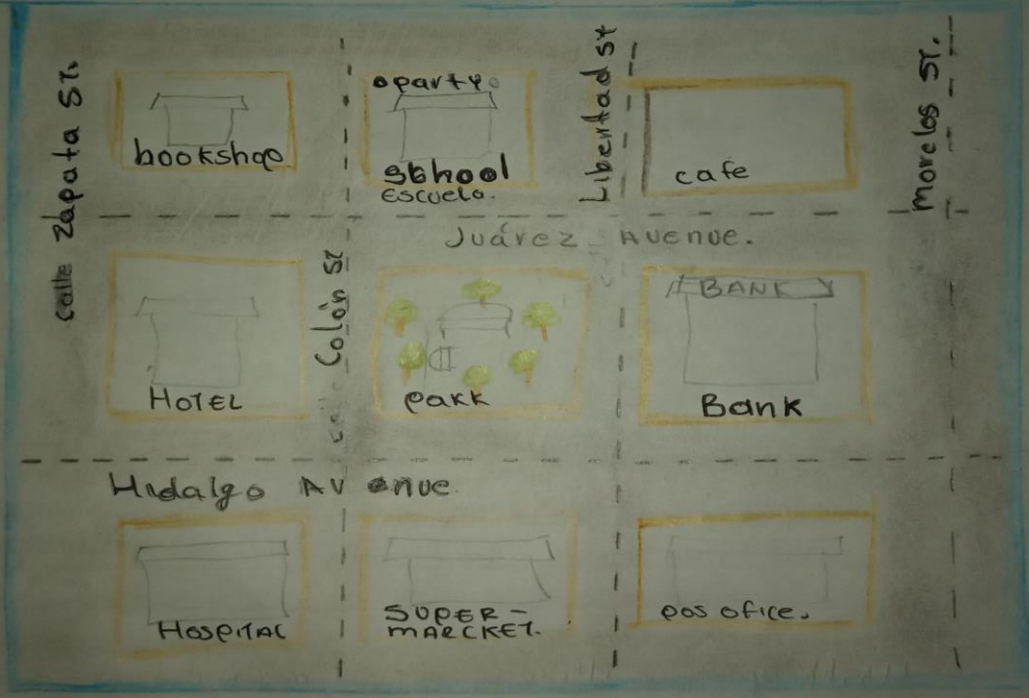 calle zapata st.
bookshop
oparty.
school
Escuela.
Libertad st
cafe
morelos st.
Juárez Avenue.
Colón st
HOTEL
Park
BANK
Bank
Hidalgo AVenue.
HOSPITAL
SUPER-
MARCKET.
pos ofice.